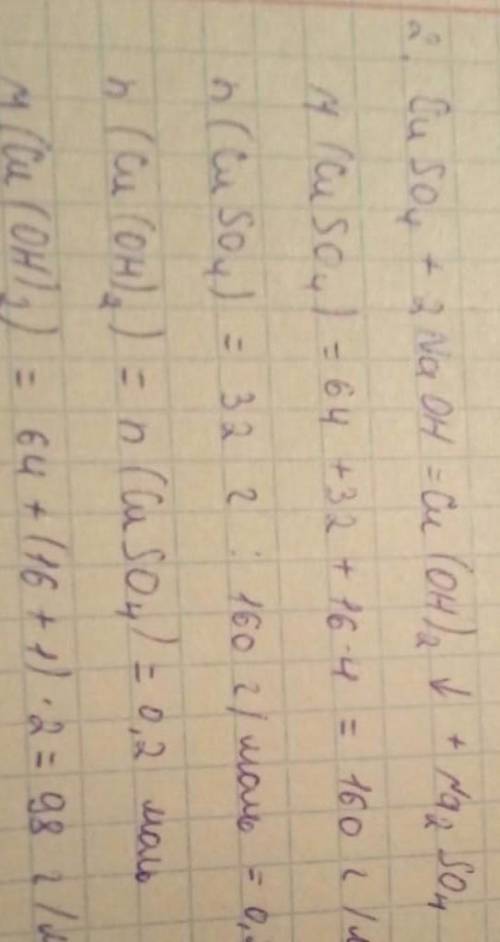 2. CuSO₄ + 2NaOH = Cu(OH)₂↓ + Na₂SO₄
M(CuSO₄) = 64 + 32 + 16·4 = 160 г/м
n(CuSO₄) = 32 г : 160 г/моль = 0,
n(Cu(OH)₂) = n(CuSO₄) = 0,2 моль
M(Cu(OH)₂) = 64 + (16 + 1)·2 = 98 г/м